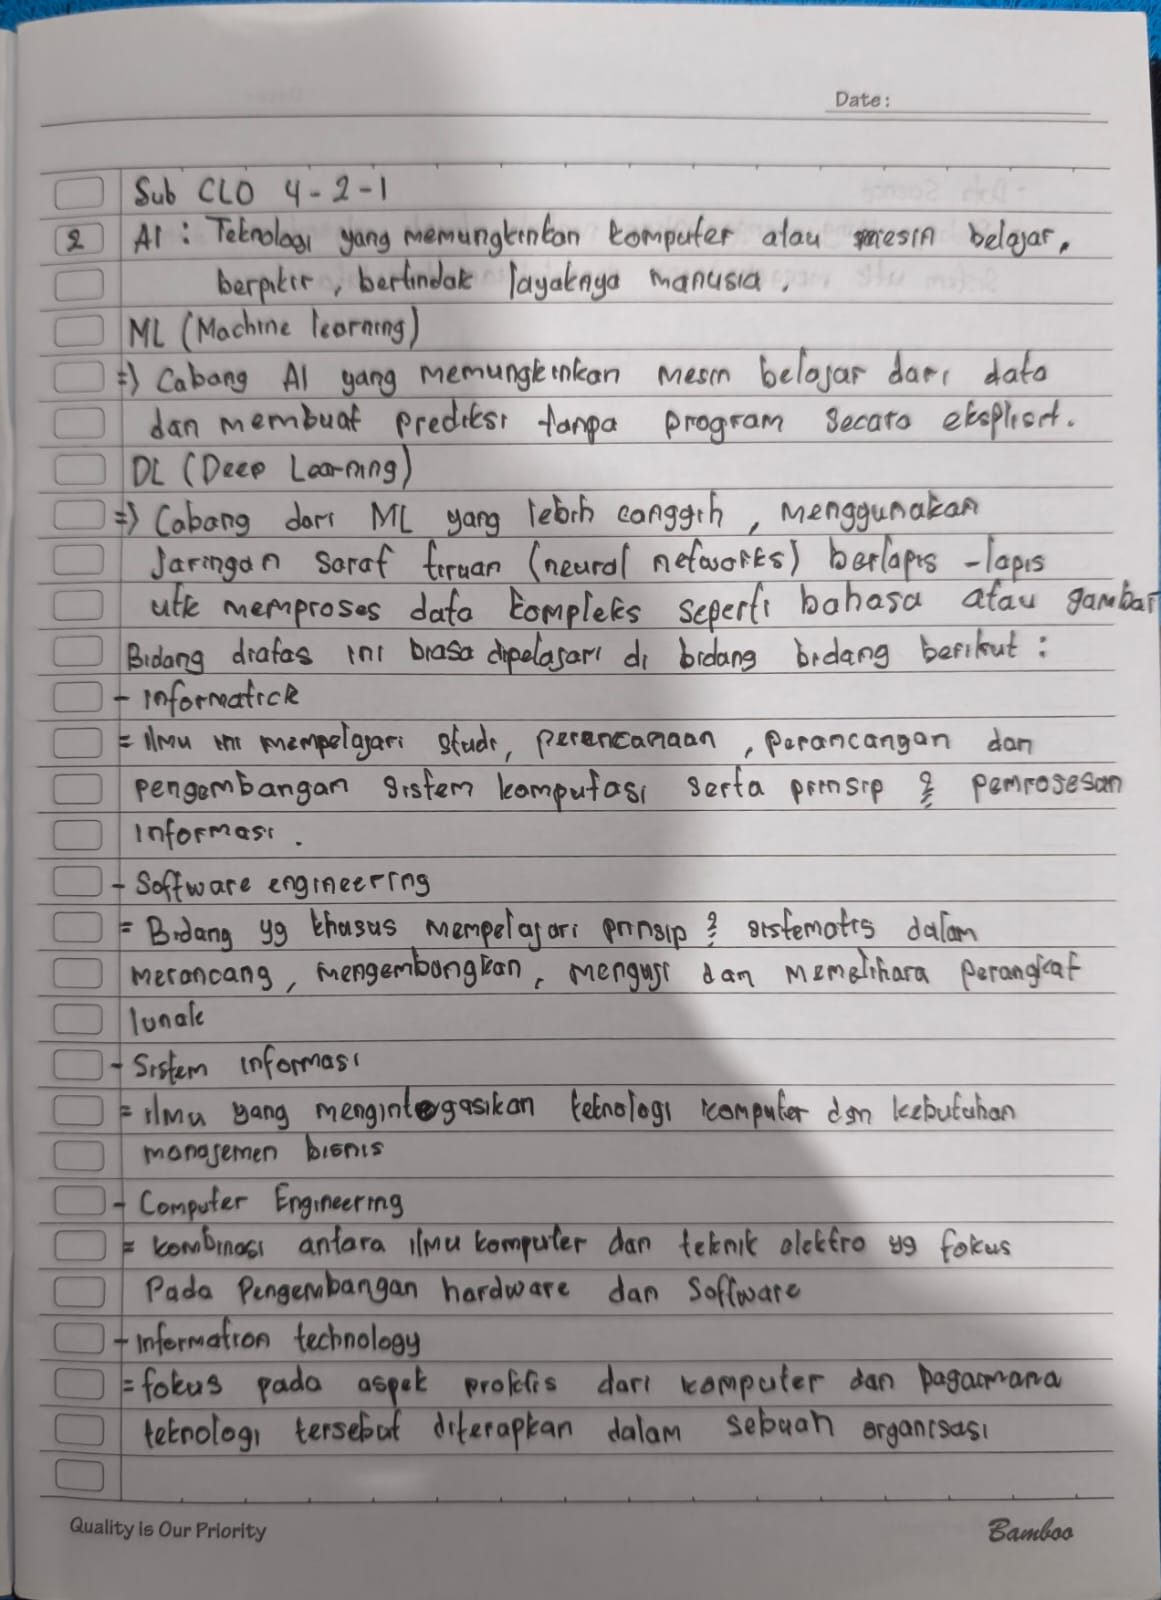 Date:
Sub CLO 4-2-1
2 AI : Teknologi yang memungkinkan komputer atau mesin belajar,
berpikir, bertindak layaknya manusia.
ML (Machine learning)
=> Cabang AI yang memungkinkan mesin belajar dari data
dan membuat prediksi tanpa program secara eksplisit.
DL (Deep Learning)
=> Cabang dari ML yang lebih canggih, menggunakan
Jaringan saraf tiruan (neural networks) berlapis-lapis
utk memproses data kompleks seperti bahasa atau gambar
Bidang diatas ini biasa dipelajari di bidang bidang berikut :
- Informatick
= ilmu ini mempelajari studi, perencanaan, perancangan dan
pengembangan sistem komputasi serta prinsip 2 pemrosesan
informasi.
- Software engineering
= Bidang yg khusus mempelajari prinsip 2 sistematis dalam
merancang, mengembangkan, menguji dan memelihara perangkat
lunak
- Sistem informasi
= ilmu yang mengintegasikan teknologi komputer dgn kebutuhan
manajemen bisnis
- Computer Engineering
= kombinasi antara ilmu komputer dan teknik elektro yg fokus
Pada Pengembangan hardware dan Software
- Information technology
= fokus pada aspek praktis dari komputer dan bagaimana
teknologi tersebut diterapkan dalam sebuah organisasi
Quality is Our Priority
Bamboo